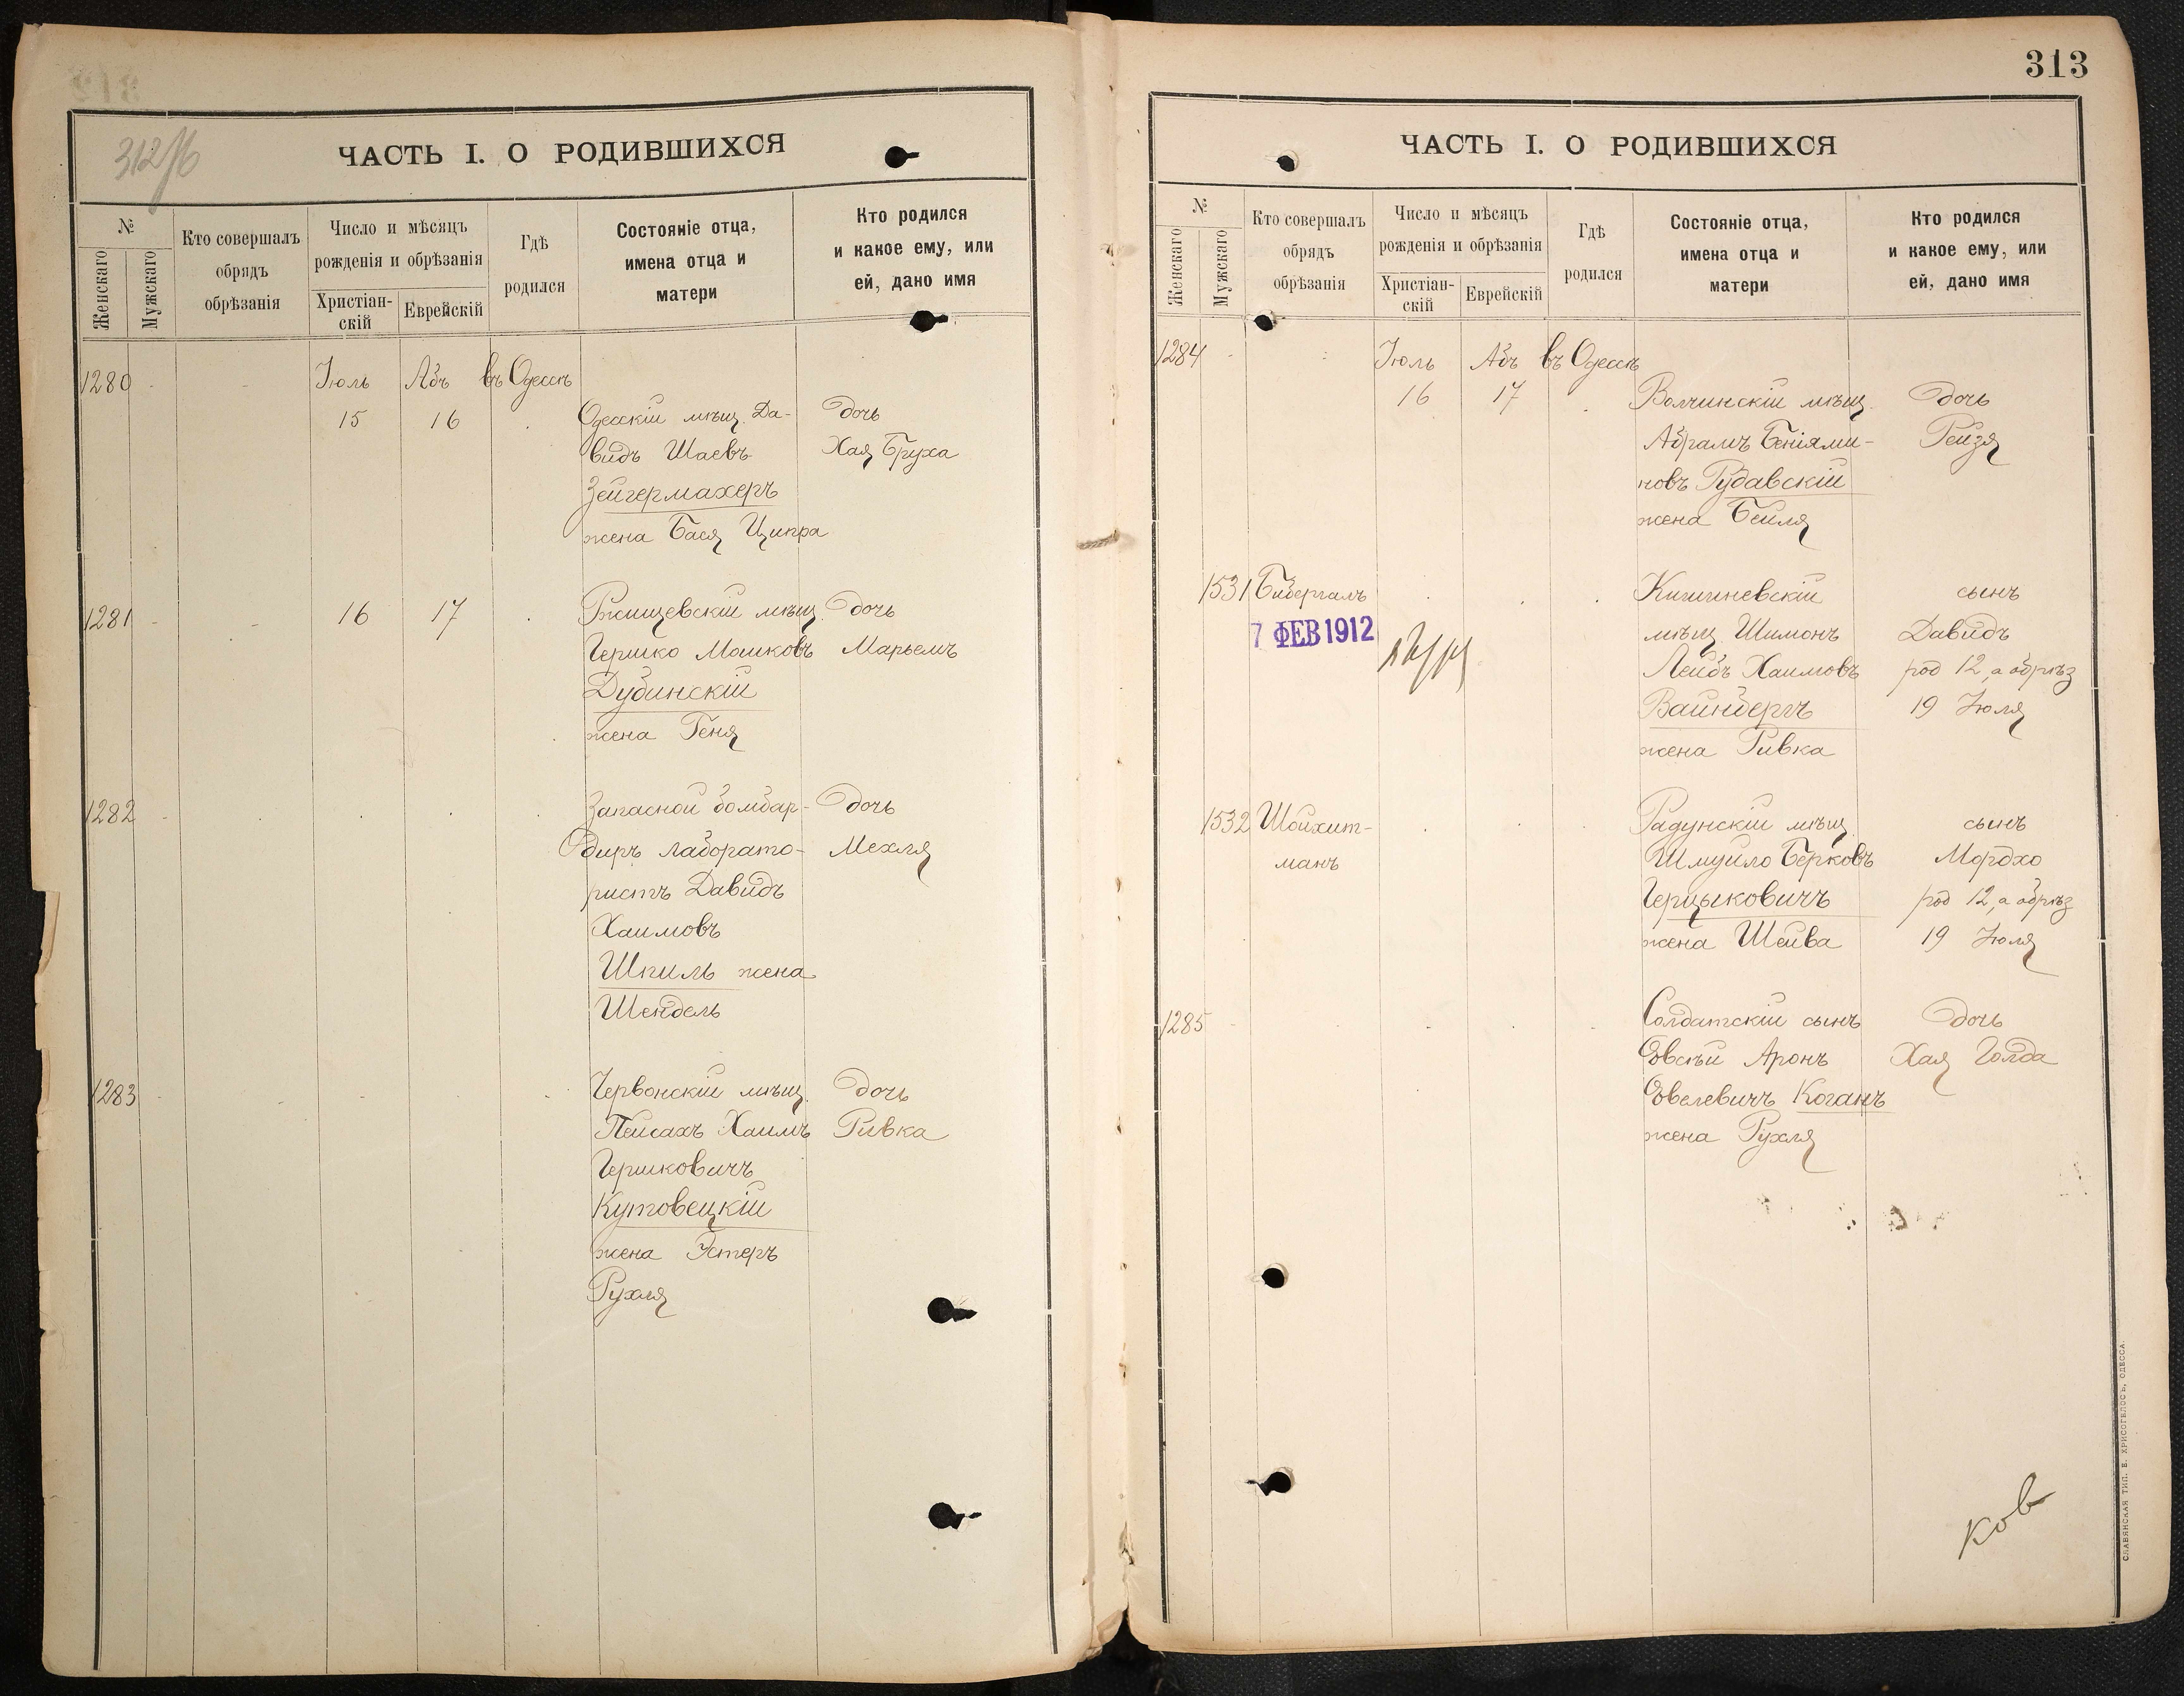 312/б
ЧАСТЬ I. О РОДИВШИХСЯ
№
Женскаго
Мужскаго
Кто совершалъ
обрядъ
обрѣзанія
Число и мѣсяцъ
рожденія и обрѣзанія
Христіан-
скій
Еврейскій
Гдѣ
родился
Состояніе отца,
имена отца и
матери
Кто родился
и какое ему, или
ей, дано имя
1280 Іюль Абъ въ Одессѣ
15 16 Одесскій мѣщ. Да- дочь
видъ Шаевъ Хая Бруха
Зейгермахеръ
жена Бася Ципра
1281 16 17 Ржищевскій мѣщ. дочь
Гершко Мошковъ Марьемъ
Дубинскій
жена Геня
1282 Запасной бомбар- дочь
диръ лаборато- Мехля
ристъ Давидъ
Хаимовъ
Шпиль жена
Шендель
1283 Червонскій мѣщ. дочь
Пейсахъ Хаимъ Ривка
Гершковичъ
Кутовецкій
жена Эстеръ
Рухля
313
ЧАСТЬ I. О РОДИВШИХСЯ
№
Женскаго
Мужскаго
Кто совершалъ
обрядъ
обрѣзанія
Число и мѣсяцъ
рожденія и обрѣзанія
Христіан-
скій
Еврейскій
Гдѣ
родился
Состояніе отца,
имена отца и
матери
Кто родился
и какое ему, или
ей, дано имя
1284 Іюль Абъ въ Одессѣ
16 17 Волчинскій мѣщ. дочь
Абрамъ Беніями- Рейзя
новъ Рудавскій
жена Бейля
1531 Бибергалъ Кишиневскій сынъ
7 ФЕВ 1912 мѣщ. Шимонъ Давидъ
Лейбъ Хаимовъ род 12, а обрѣз
Вайнбергъ 19 Іюля
жена Ривка
1532 Шойхит- Радунскій мѣщ. сынъ
манъ Шмуило Берковъ Мордхо
Герцыковичъ род 12, а обрѣз
жена Шейва 19 Іюля
1285 Солдатскій сынъ дочь
Овсѣй Аронъ Хая Голда
Овелевичъ Коганъ
жена Рухля
Ков
СЛАВЯНСКАЯ ТИП. Е. ХРИСОГЕЛОСЪ, ОДЕССА.